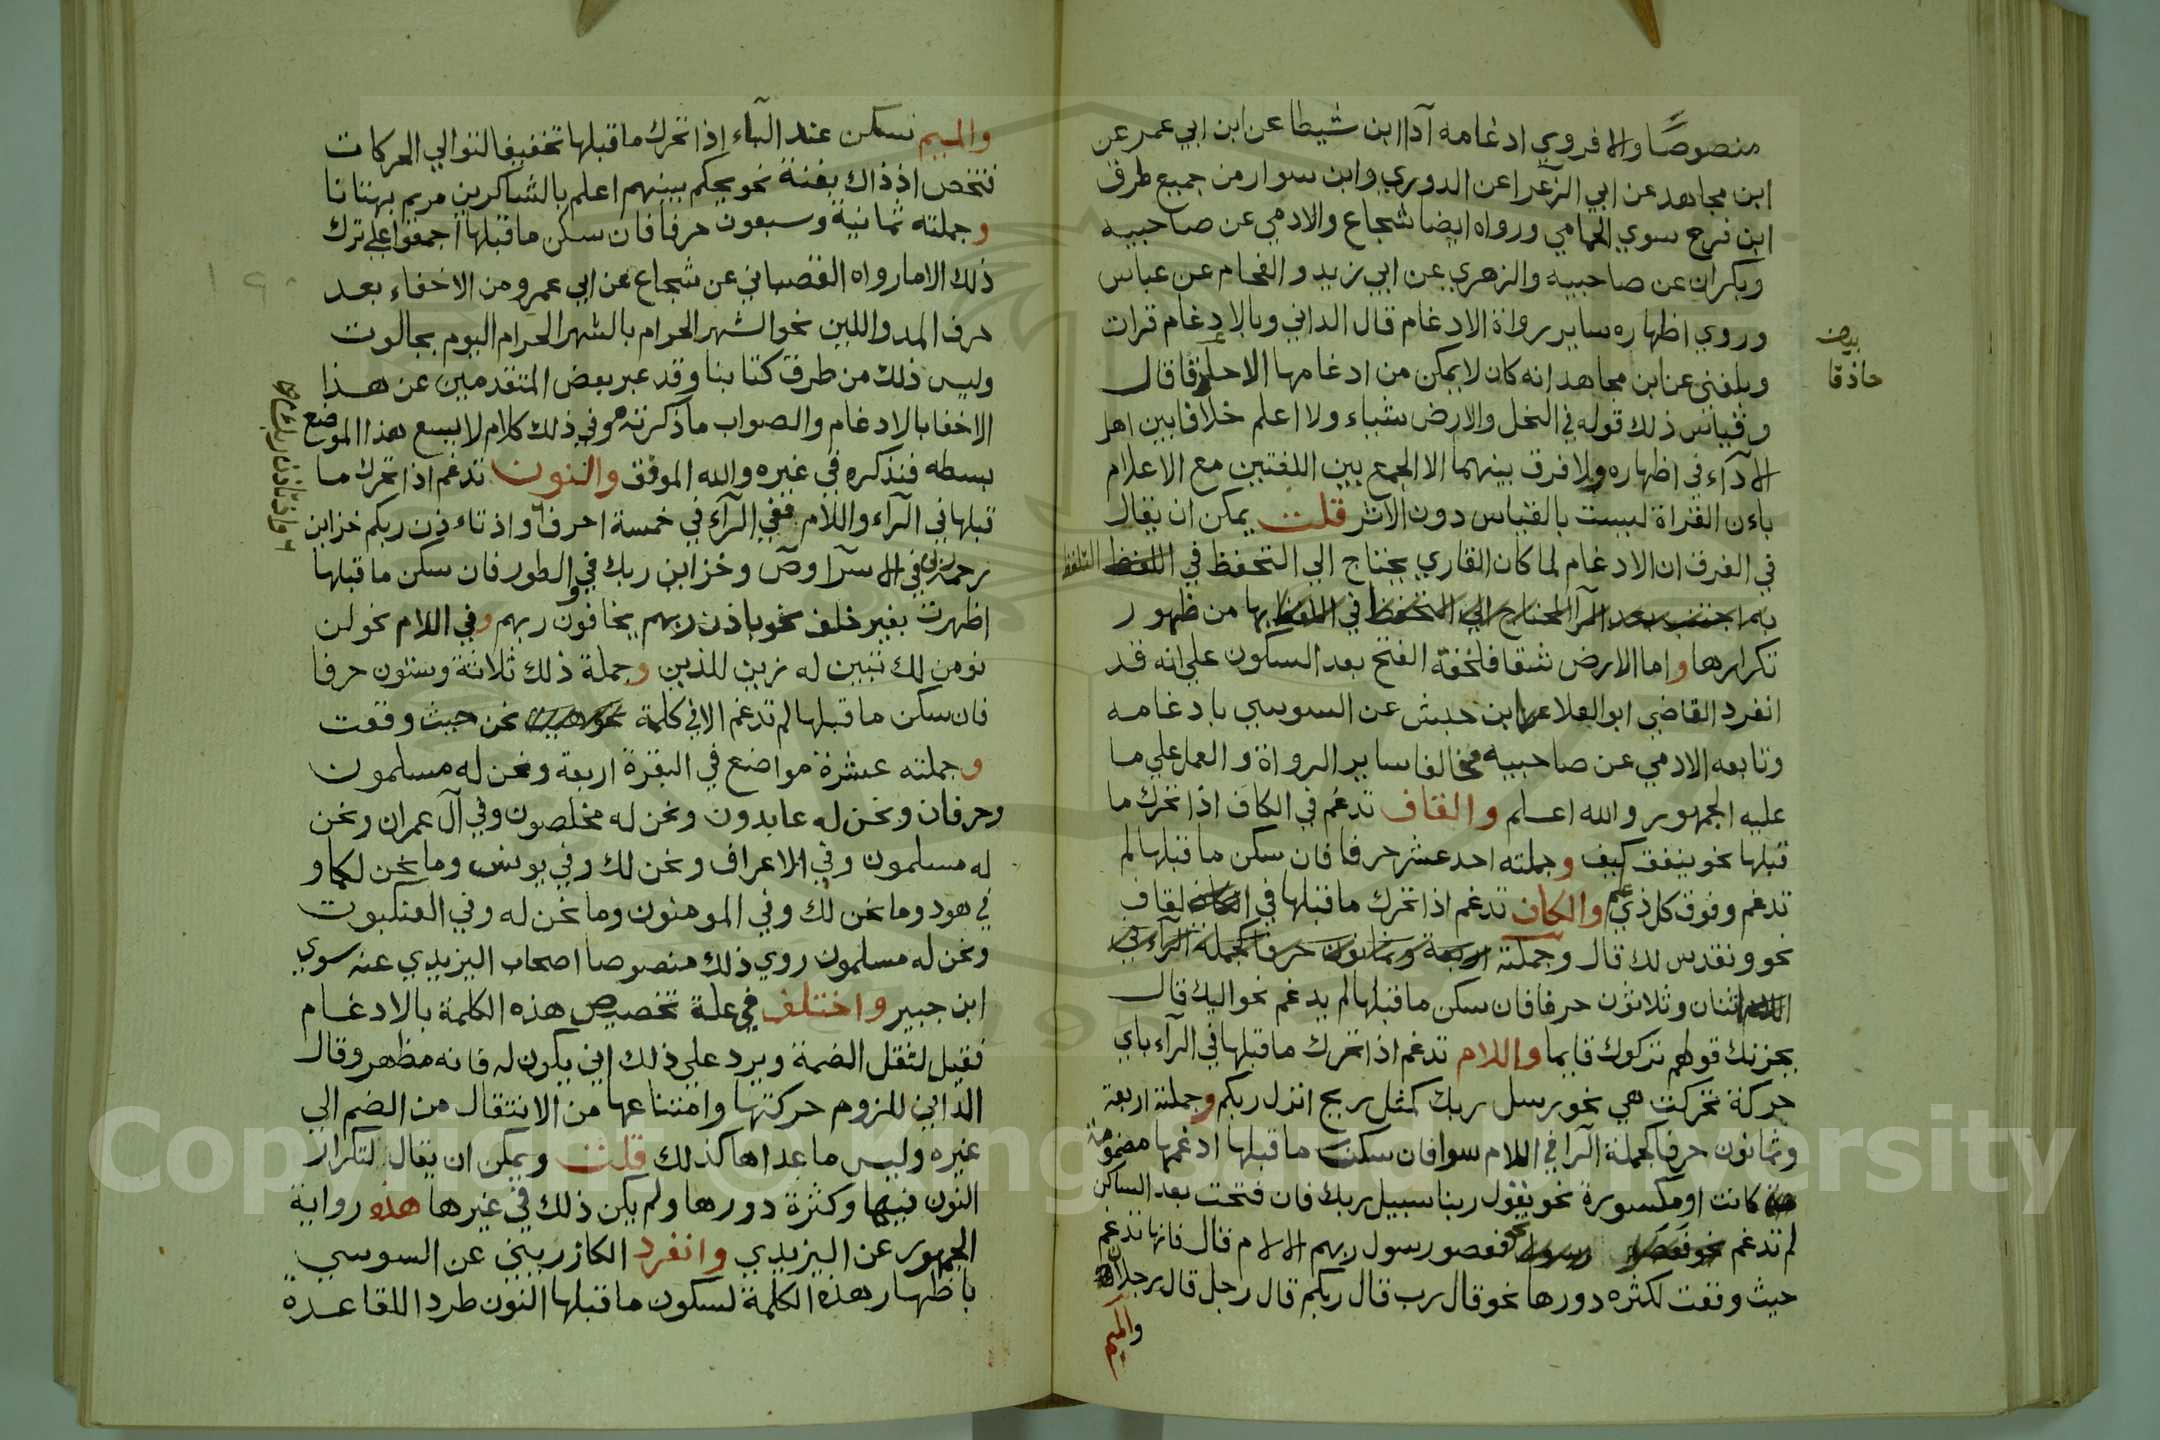 منصوصا والا فروي ادغامه آداابن شيطا عن ابن ابي عمر عن
ابن مجاهد عن ابي الزعرا عن الدوري وابن سوار من جميع طرق
ابن فرح سوي الحمامي ورواه ايضا شجاع والادمي عن صاحبيه
وبكران عن صاحبيه والزهري عن ابي زيد والفحام عن عباس
وروي اظهاره ساير رواة الادغام قال الداني وبالادغام قرات
وبلغني عن ابن مجاهد انه كان لا يمكن من ادغامها الا حاذقا قال
بيان
حاذقا
وقياس ذلك قوله في النحل والارض شياء ولا اعلم خلافا بين اهل
الآدآء في اظهاره ولا فرق بينهما الا الجمع بين اللغتين مع الاعلام
باءن القراة ليست بالقياس دون الاثر قلت يمكن ان يقال
في الفرق ان الادغام لما كان القاري يحتاج الي التحفظ في اللفظ التلفظ
بها من ظهور
تكرارها واما الارض شقا فلخفة الفتح بعد السكون علي انه قد
انفرد القاضي ابو العلا عن ابن حبش عن السوسي بادغامه
وتابعه الادمي عن صاحبيه فخالفا ساير الرواة والعمل علي ما
عليه الجمهور والله اعلم والقاف تدغم في الكاف اذا تحرك ما
قبلها نحو ينفق كيف وجملته احد عشر حرفا فان سكن ما قبلها لم
تدغم وفوق كل ذي علم والكاف تدغم اذا تحرك ما قبلها في القاف
نحو ونقدس لك قال وجملته اربعة وثمانون حرفا كجملة الرآء في
اللام اثنان وثلاثون حرفا فان سكن ما قبلها لم يدغم نحو اليك قال
يحزنك قولهم تركوك قايما واللام تدغم اذا تحرك ما قبلها في الرآء باي
حركة تحركت هي نحو رسل ربك كمثل ريح انزل ربكم وجملته اربعة
وثمانون حرفا كجملة الرآ في اللام سوا فان سكن ما قبلها ادغمها مضمومة
كانت او مكسورة نحو يقول ربنا سبيل ربك فان فتحت بعد الساكن
لم تدغم نحو فعصو رسول ربهم الا لام قال فانها تدغم
حيث وقعت لكثره دورها نحو قال رب قال ربكم قال رجل قال رجلان
والميم
والميم تسكن عند الباء اذا تحرك ما قبلها تخفيفا لتوالي الحركات
فتخص اذ ذاك بغنة نحو يحكم بينهم اعلم بالشاكرين مريم بهتانا
وجملته ثمانية وسبعون حرفا فان سكن ما قبلها اجمعوا علي ترك
ذلك الا ما رواه القصباني عن شجاع عن ابي عمرو من الاخفاء بعد
حرف المد واللين نحو الشهر الحرام بالشهر الحرام اليوم بجالوت
وليس ذلك من طرق كتابنا وقد عبر بعض المتقدمين عن هذا
الاخفا بالادغام والصواب ما ذكرته وفي ذلك كلام لا يسع هذا الموضع
بسطه فنذكره في غيره والله الموفق والنون تدغم اذا تحرك ما
قبلها في الرآء واللام ففي الرآء في خمسة احرف واذ تاءذن ربكم خزاين
رحمة ربي في الاسرآ وص وخزاين ربك في والطور فان سكن ما قبلها
اظهرت بغير خلف نحو باذن ربهم يخافون ربهم وفي اللام نحو لن
نومن لك تبين له زين للذين وجملة ذلك ثلاثة وستون حرفا
فان سكن ما قبلها لم تدغم الا في كلمة نحن حيث وقعت
وجملته عشرة مواضع في البقرة اربعة ونحن له مسلمون
وحرفان ونحن له عابدون ونحن له مخلصون وفي آل عمران ونحن
له مسلمون وفي الاعراف ونحن لك وفي يونس وما نحن لكما و
في هود وما نحن لك وفي المومنون وما نحن له وفي العنكبوت
ونحن له مسلمون روي ذلك منصوصا اصحاب اليزيدي عنه سوي
ابن جبير واختلف في علة تخصيص هذه الكلمة بالادغام
فقيل لثقل الضمة ويرد علي ذلك اني يكون له فانه مظهر وقال
الداني للزوم حركتها وامتناعها من الانتقال من الضم الي
غيره وليس ما عداها كذلك قلت ويمكن ان يقال لتكرار
النون فيها وكثرة دورها ولم يكن ذلك في غيرها هذه رواية
الجمهور عن اليزيدي وانفرد الكارزيني عن السوسي
باظهار هذه الكلمة لسكون ما قبلها النون طردا للقاعدة
Copyright © King Saud University